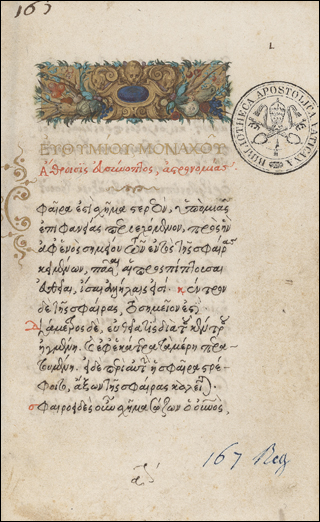 163
1.
ΕΥΘΥΜΙΟΥ ΜΟΝΑΧΟΥ
Ἄθροισις εὐσύνοπτος, ἀστρονομίας.
φαῖρα ἐστὶ σχῆμα στερεὸν, ὑπὸ μιᾶς
ἐπιφανείας περιεχόμενον, πρὸς ἣν
ἀφ' ἑνὸς σημείου τῶν ἐντὸς τῆς σφαίρας
κειμένων, πᾶσαι αἱ προσπίπτουσαι
εὐθεῖαι, ἴσαι ἀλλήλαις εἰσί. κέντρον
δὲ τῆς σφαίρας, τὸ σημεῖόν ἐστι.
Διάμετρος δὲ, εὐθεῖά τις διὰ τοῦ κέντρου
ἠγμένη. καὶ ἐφ' ἑκάτερα τὰ μέρη περα
τουμένη. δὲ περὶ αὐτὴν ἡ σφαῖρα στρέ
φοιτο, ἄξων τῆς σφαίρας καλεῖται.
σφαιροειδὲς οὖν σχῆμα σώζων ὁ οὐρανός,
167 Reg
BIBLIOTHECA APOSTOLICA VATICANA